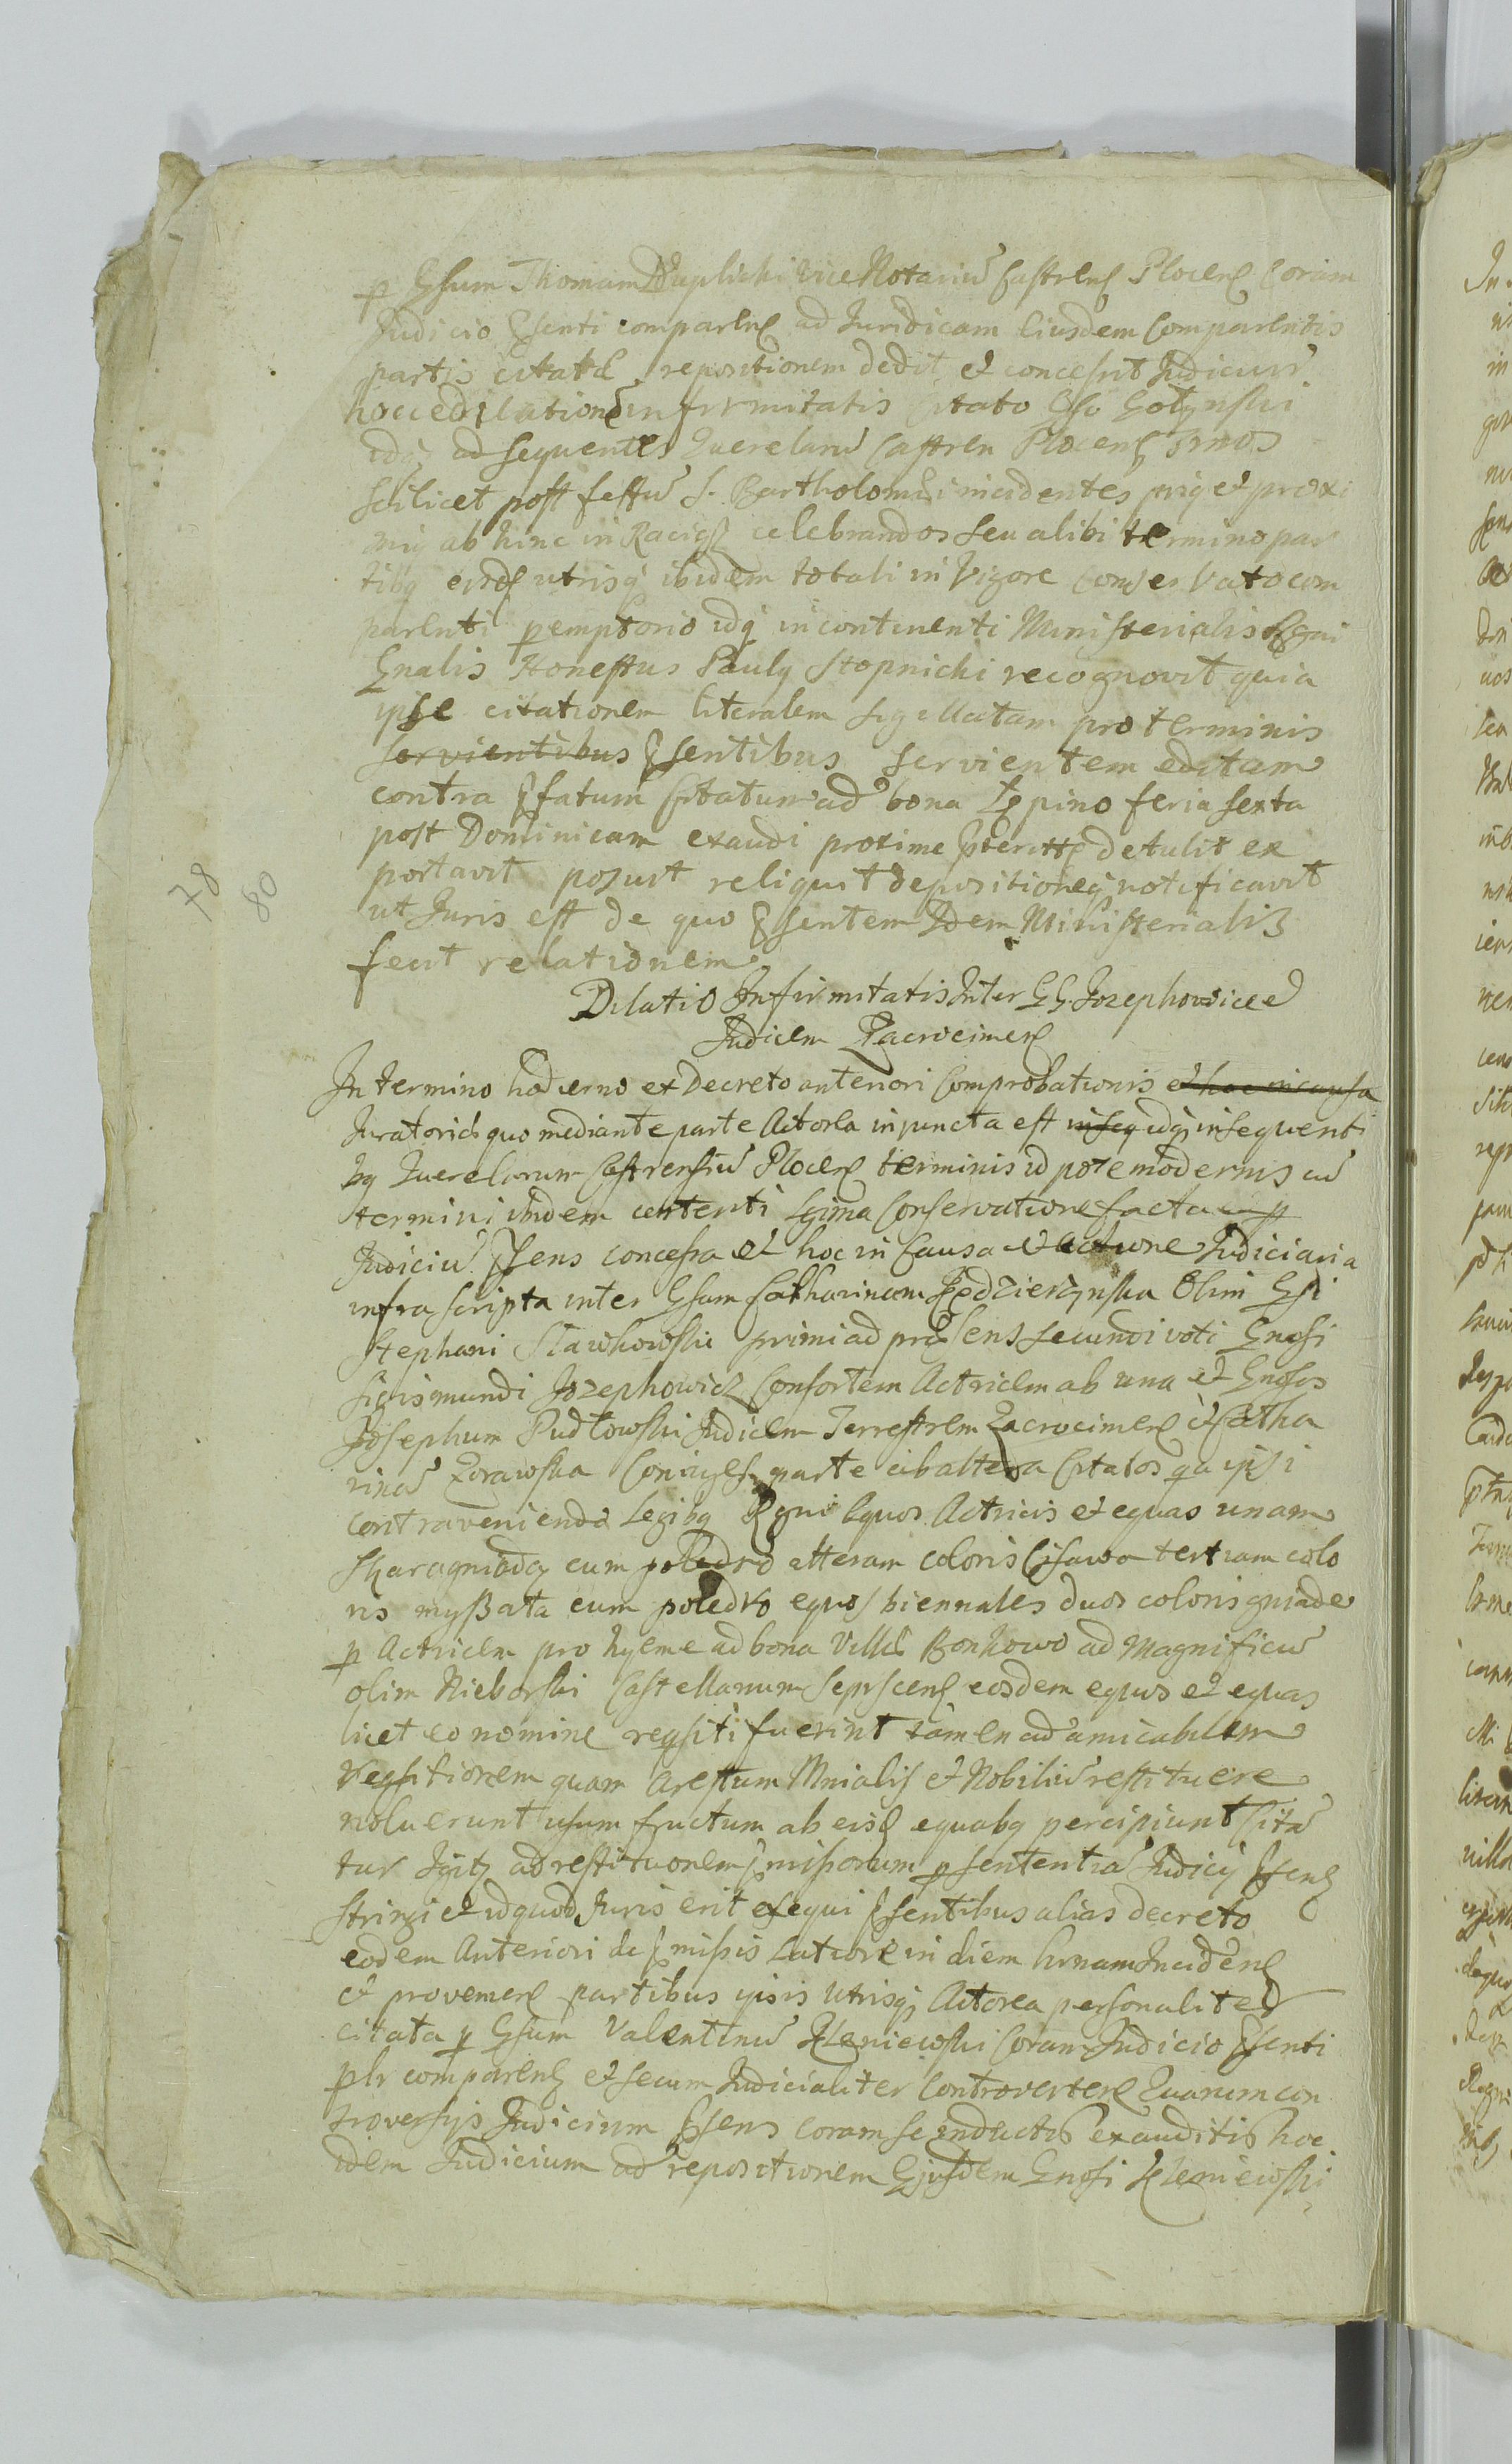 p Gsum Thomam Duplicki viceNotariu Castrens Plocens Coram
Judicio Psenti comparens ad Juridicam Eiusdem Comparentis
partis citatæ repositionem dedit et concessit Judiciur
hocce dilationem infirmitatis Citato Gso Gołynski
idq ad sequentes Querelaru Castren Plocens Trnos
scilicet post festu S. Bartholomæi incidentes priq et proxi
mq ab hinc in Raciąz celebrandos seu alibi termino par
tibq eisds utrisq ibidem totali in Vigore Conservato com
parenti pemptorio idq incontinenti Ministerialis Regni
Gnalis Honestus Paulq Stopnicki recognovit quia
ipse citationem literalem sigillatam pro terminis
servientibus Psentibus servientem editam
contra Pfatum Citatum ad bona Lępino feria sexta
post Dominicam exaudi proxime Pteritt detulit ex
portavit posuit reliquit depositioneq notificavit
ut Juris est de quo Psentem Idem Ministerialis
fecit relationem
Dilatio Infirmitatis Inter GG. Jozephowicze
Judicem Zacrocimens
In termino hodierno ex Decreto anteriori Comprobationis et hoc in causa
Juratoriæ quo mediante parte Actorea injuncta est inseq idq insequenti
bq Querelarum Castrensiu Plocens terminis id pote modernis cu
termini ibidem certenti Lgima Conservatione facta
Judiciu Psens concessa et hoc in Causa et actione Judiciaria
infra scripta inter Gsam Catharinam Kędzierzynska Olim Gsi
Stephani Sławkowski primi ad præsens secundi voti Gnosi
Sigismundi Jozephowicz Consortem Actricem ab una et Gnosos
Josephum Pudłowski Judicem Terrestrem Zacrocimens et Catha
rina Zorawska Coniuges parte ab altera Citatos qa ipsi
contraveniendo Legibq Rgni Equos Actricis et equas unam
skarogniadą cum poledro alteram coloris Cisawa tertiam colo
ris myßata cum poledro equos biennales duos coloris gniade
p Actricem pro hyeme ad bona Villæ Bonkowo ad Magnificu
olim Nieborski Castellanum Sepscens eosdem equos et equas
licet eo nomine reqsiti fuerint tamen ad amicabilem
reqsitionem quam arestum Mnialis et Nobiliu restituere
noluerunt usum fructum ab eisd equabq percipiunt Cita
tur Igitz ad restitutionem Pmißorum p sententia Judicij Psens
stringi et id quod Juris erit exequi Psentibus alias decreto
eodem Anteriori de Pmißis Latiore in diem hrnam Incidens
et proveniens partibus ipsis Utrisq Actorea personaliter
citata p Gsum Valentinu Kleniewski Coram Judicio Psenti
plr comparens et secum Judicialiter Controvertens Quarum con
troversijs Judicium Psens coram se inductis exauditis hoc
idem Judicium ad repositionem Ejusdem Gnosi Kleniewski
78 80